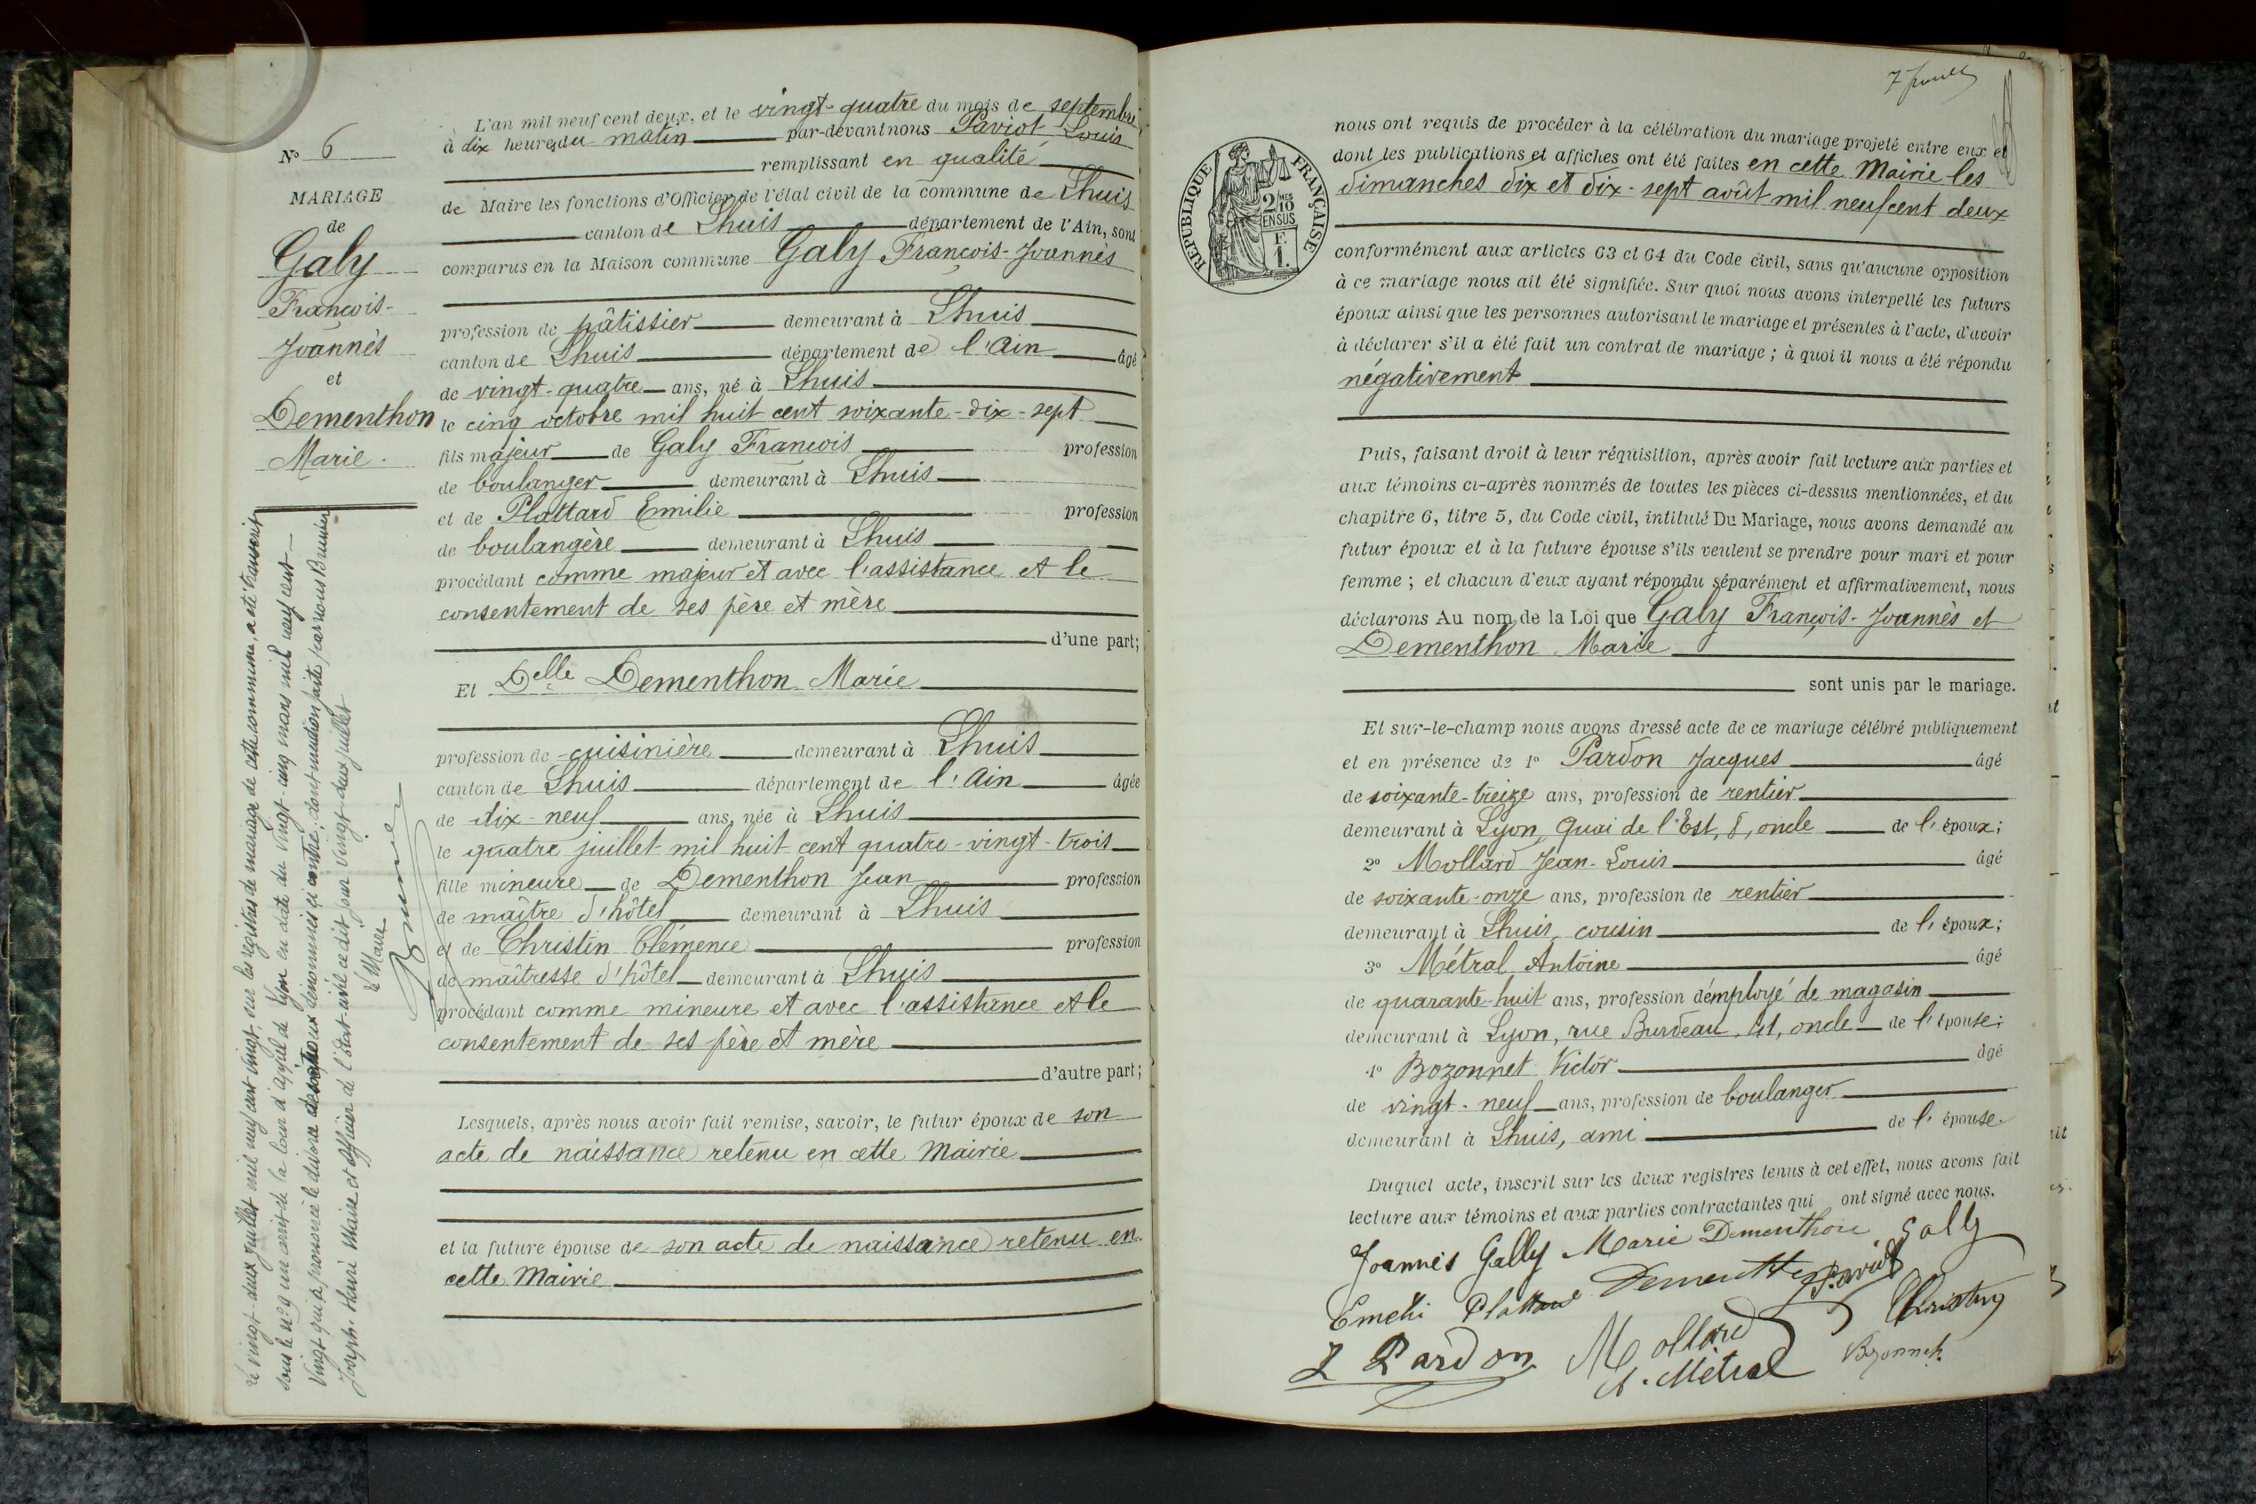 N° 6
MARIAGE
de
Galy
François-
Joannès
et
Dementhon
Marie.
Le vingt-deux juillet mil neuf cent vingt, sur les registres de mariage de cette commune, a été transcrit
sous le n° 9 un arrêt de la Cour d'appel de Lyon en date du vingt-cinq mars mil neuf cent
vingt qui a prononcé le divorce des époux dénommés ci contre, dont mention faite par nous Brunier
Joseph-Henri Maire et officier de l'état-civil ce dit jour vingt-deux juillet
Le Maire
Brunier
L'an mil neuf cent deux, et le vingt-quatre du mois de septembre
à dix heures du matin par-devant nous Paviot Louis
remplissant en qualité
de Maire les fonctions d'Officier de l'état civil de la commune de Lhuis
canton de Lhuis département de l'Ain, sont
comparus en la Maison commune Galy François-Joannès
profession de pâtissier demeurant à Lhuis
canton de Lhuis département de l'Ain âgé
de vingt-quatre ans, né à Lhuis
le cinq octobre mil huit cent soixante-dix-sept
fils majeur de Galy François profession
de boulanger demeurant à Lhuis
et de Plattard Emilie profession
de boulangère demeurant à Lhuis
procédant comme majeur et avec l'assistance et le
consentement de ses père et mère
d'une part;
Et Delle Dementhon Marie
profession de cuisinière demeurant à Lhuis
canton de Lhuis département de l'Ain âgée
de dix-neuf ans, née à Lhuis
le quatre juillet mil huit cent quatre-vingt-trois
fille mineure de Dementhon Jean profession
de maître d'hôtel demeurant à Lhuis
et de Christin Clémence profession
de maîtresse d'hôtel demeurant à Lhuis
procédant comme mineure et avec l'assistance et le
consentement de ses père et mère
d'autre part;
Lesquels, après nous avoir fait remise, savoir, le futur époux de son
acte de naissance retenu en cette Mairie
et la future épouse de son acte de naissance retenu en
cette Mairie
REPUBLIQUE FRANÇAISE
2/10MES
EN SUS
F.
1.
nous ont requis de procéder à la célébration du mariage projeté entre eux et
dont les publications et affiches ont été faites en cette Mairie les
dimanches dix et dix-sept août mil neuf cent deux
conformément aux articles 63 et 64 du Code civil, sans qu'aucune opposition
à ce mariage nous ait été signifiée. Sur quoi nous avons interpellé les futurs
époux ainsi que les personnes autorisant le mariage et présentes à l'acte, d'avoir
à déclarer s'il a été fait un contrat de mariage; à quoi il nous a été répondu
négativement
Puis, faisant droit à leur réquisition, après avoir fait lecture aux parties et
aux témoins ci-après nommés de toutes les pièces ci-dessus mentionnées, et du
chapitre 6, titre 5, du Code civil, intitulé Du Mariage, nous avons demandé au
futur époux et à la future épouse s'ils veulent se prendre pour mari et pour
femme; et chacun d'eux ayant répondu séparément et affirmativement, nous
déclarons Au nom de la Loi que Galy François-Joannès et
Dementhon Marie
sont unis par le mariage.
Et sur-le-champ nous avons dressé acte de ce mariage célébré publiquement
et en présence de 1° Pardon Jacques âgé
de soixante-treize ans, profession de rentier
demeurant à Lyon, Quai de l'Est, 8, oncle de l'époux;
2° Mollard Jean-Louis âgé
de soixante-onze ans, profession de rentier
demeurant à Lhuis, cousin de l'époux;
3° Métral Antoine âgé
de quarante-huit ans, profession d'employé de magasin
demeurant à Lyon, rue Burdeau, 41, oncle de l'épouse;
4° Bozonnet Victor âgé
de vingt-neuf ans, profession de boulanger
demeurant à Lhuis, ami de l'épouse.
Duquel acte, inscrit sur les deux registres tenus à cet effet, nous avons fait
lecture aux témoins et aux parties contractantes qui ont signé avec nous.
Joannès Gally Marie Dementhon Gally
Emelie Plattard Dementhon Paviot
Christin
J Pardon Mollard Bozonnet
A. Métral